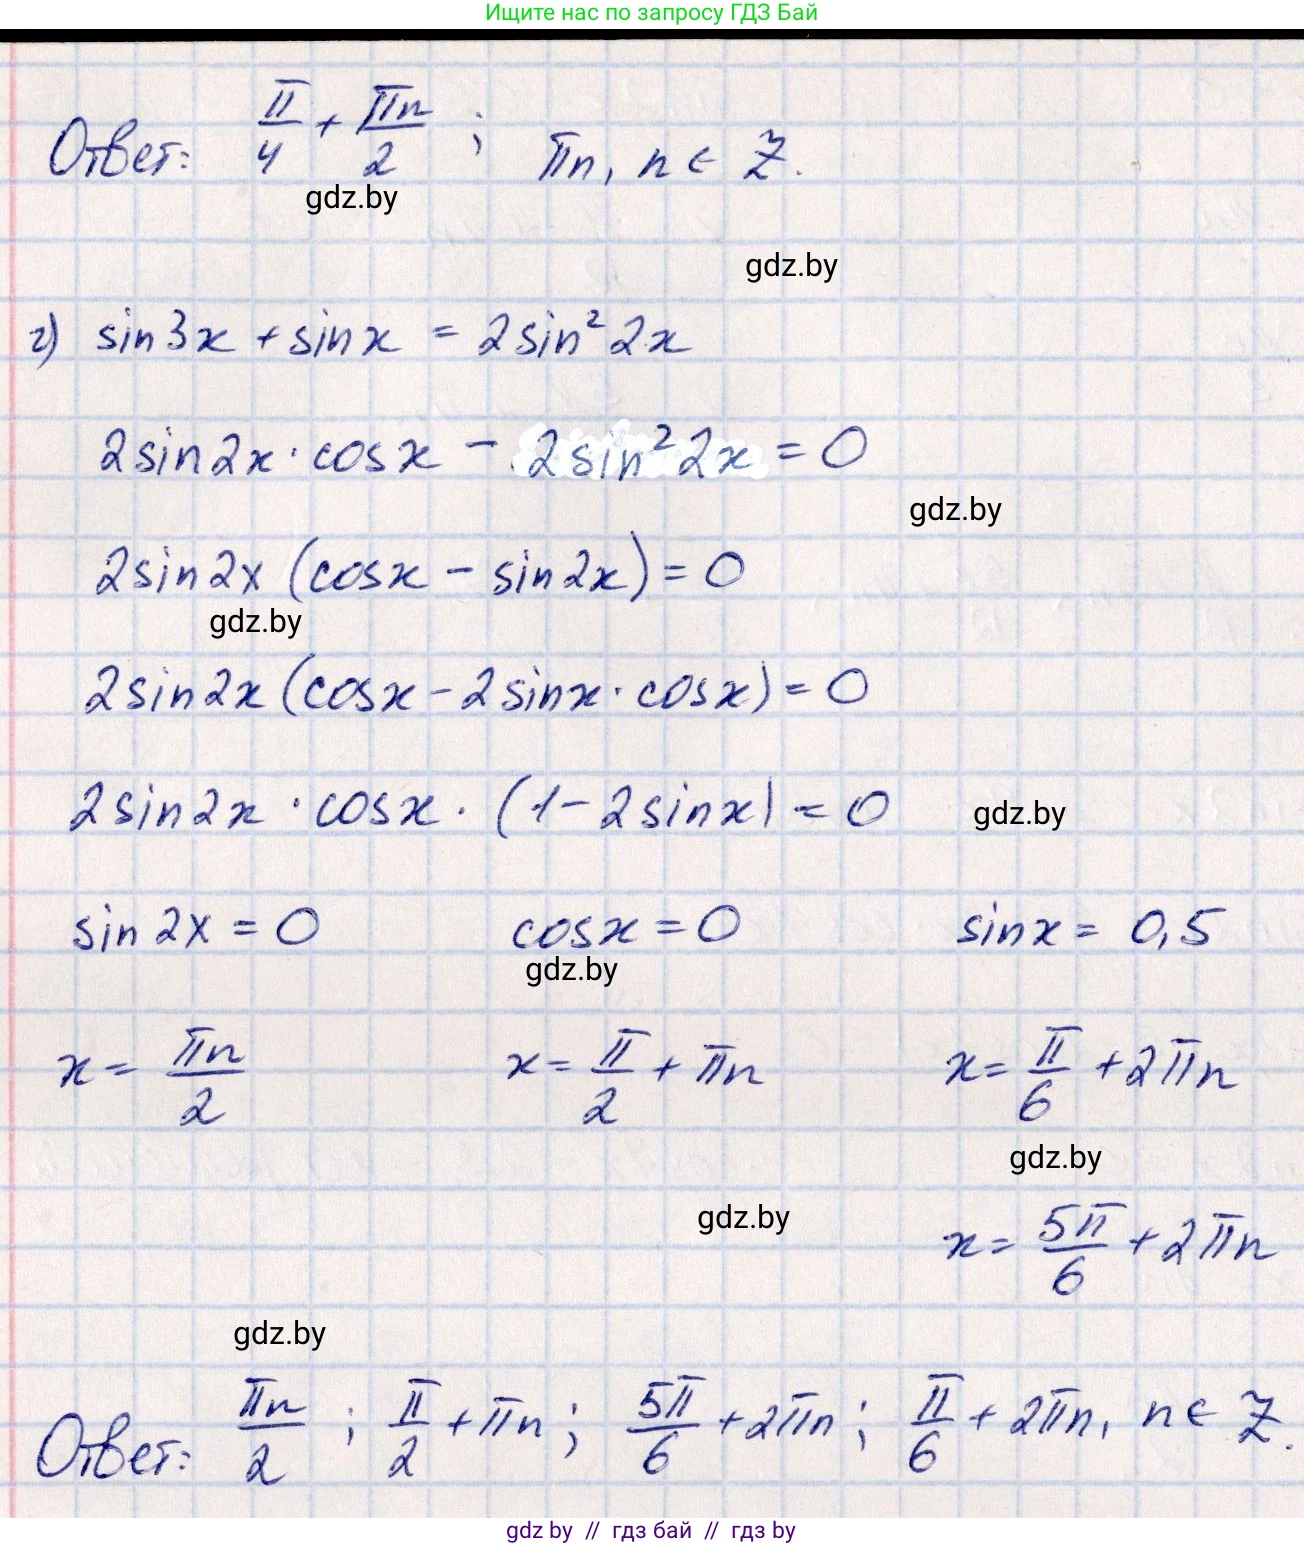 Ищите нас по запросу ГДЗ Бай
Ответ: π/4 + πn/2 ; πn, n ∈ Z.
gdz.by
gdz.by
г) sin3x + sinx = 2sin² 2x
2sin2x · cosx − 2sin² 2x = 0
gdz.by
2sin2x (cosx − sin2x) = 0
gdz.by
2sin2x (cosx − 2sinx · cosx) = 0
2sin2x · cosx · (1 − 2sinx) = 0
gdz.by
sin 2x = 0 cosx = 0 sinx = 0,5
gdz.by
x = πn/2 x = π/2 + πn x = π/6 + 2πn
gdz.by
gdz.by
x = 5π/6 + 2πn
gdz.by
Ответ: πn/2 ; π/2 + πn ; 5π/6 + 2πn ; π/6 + 2πn, n ∈ Z.
gdz by // гдз бай // гдз by